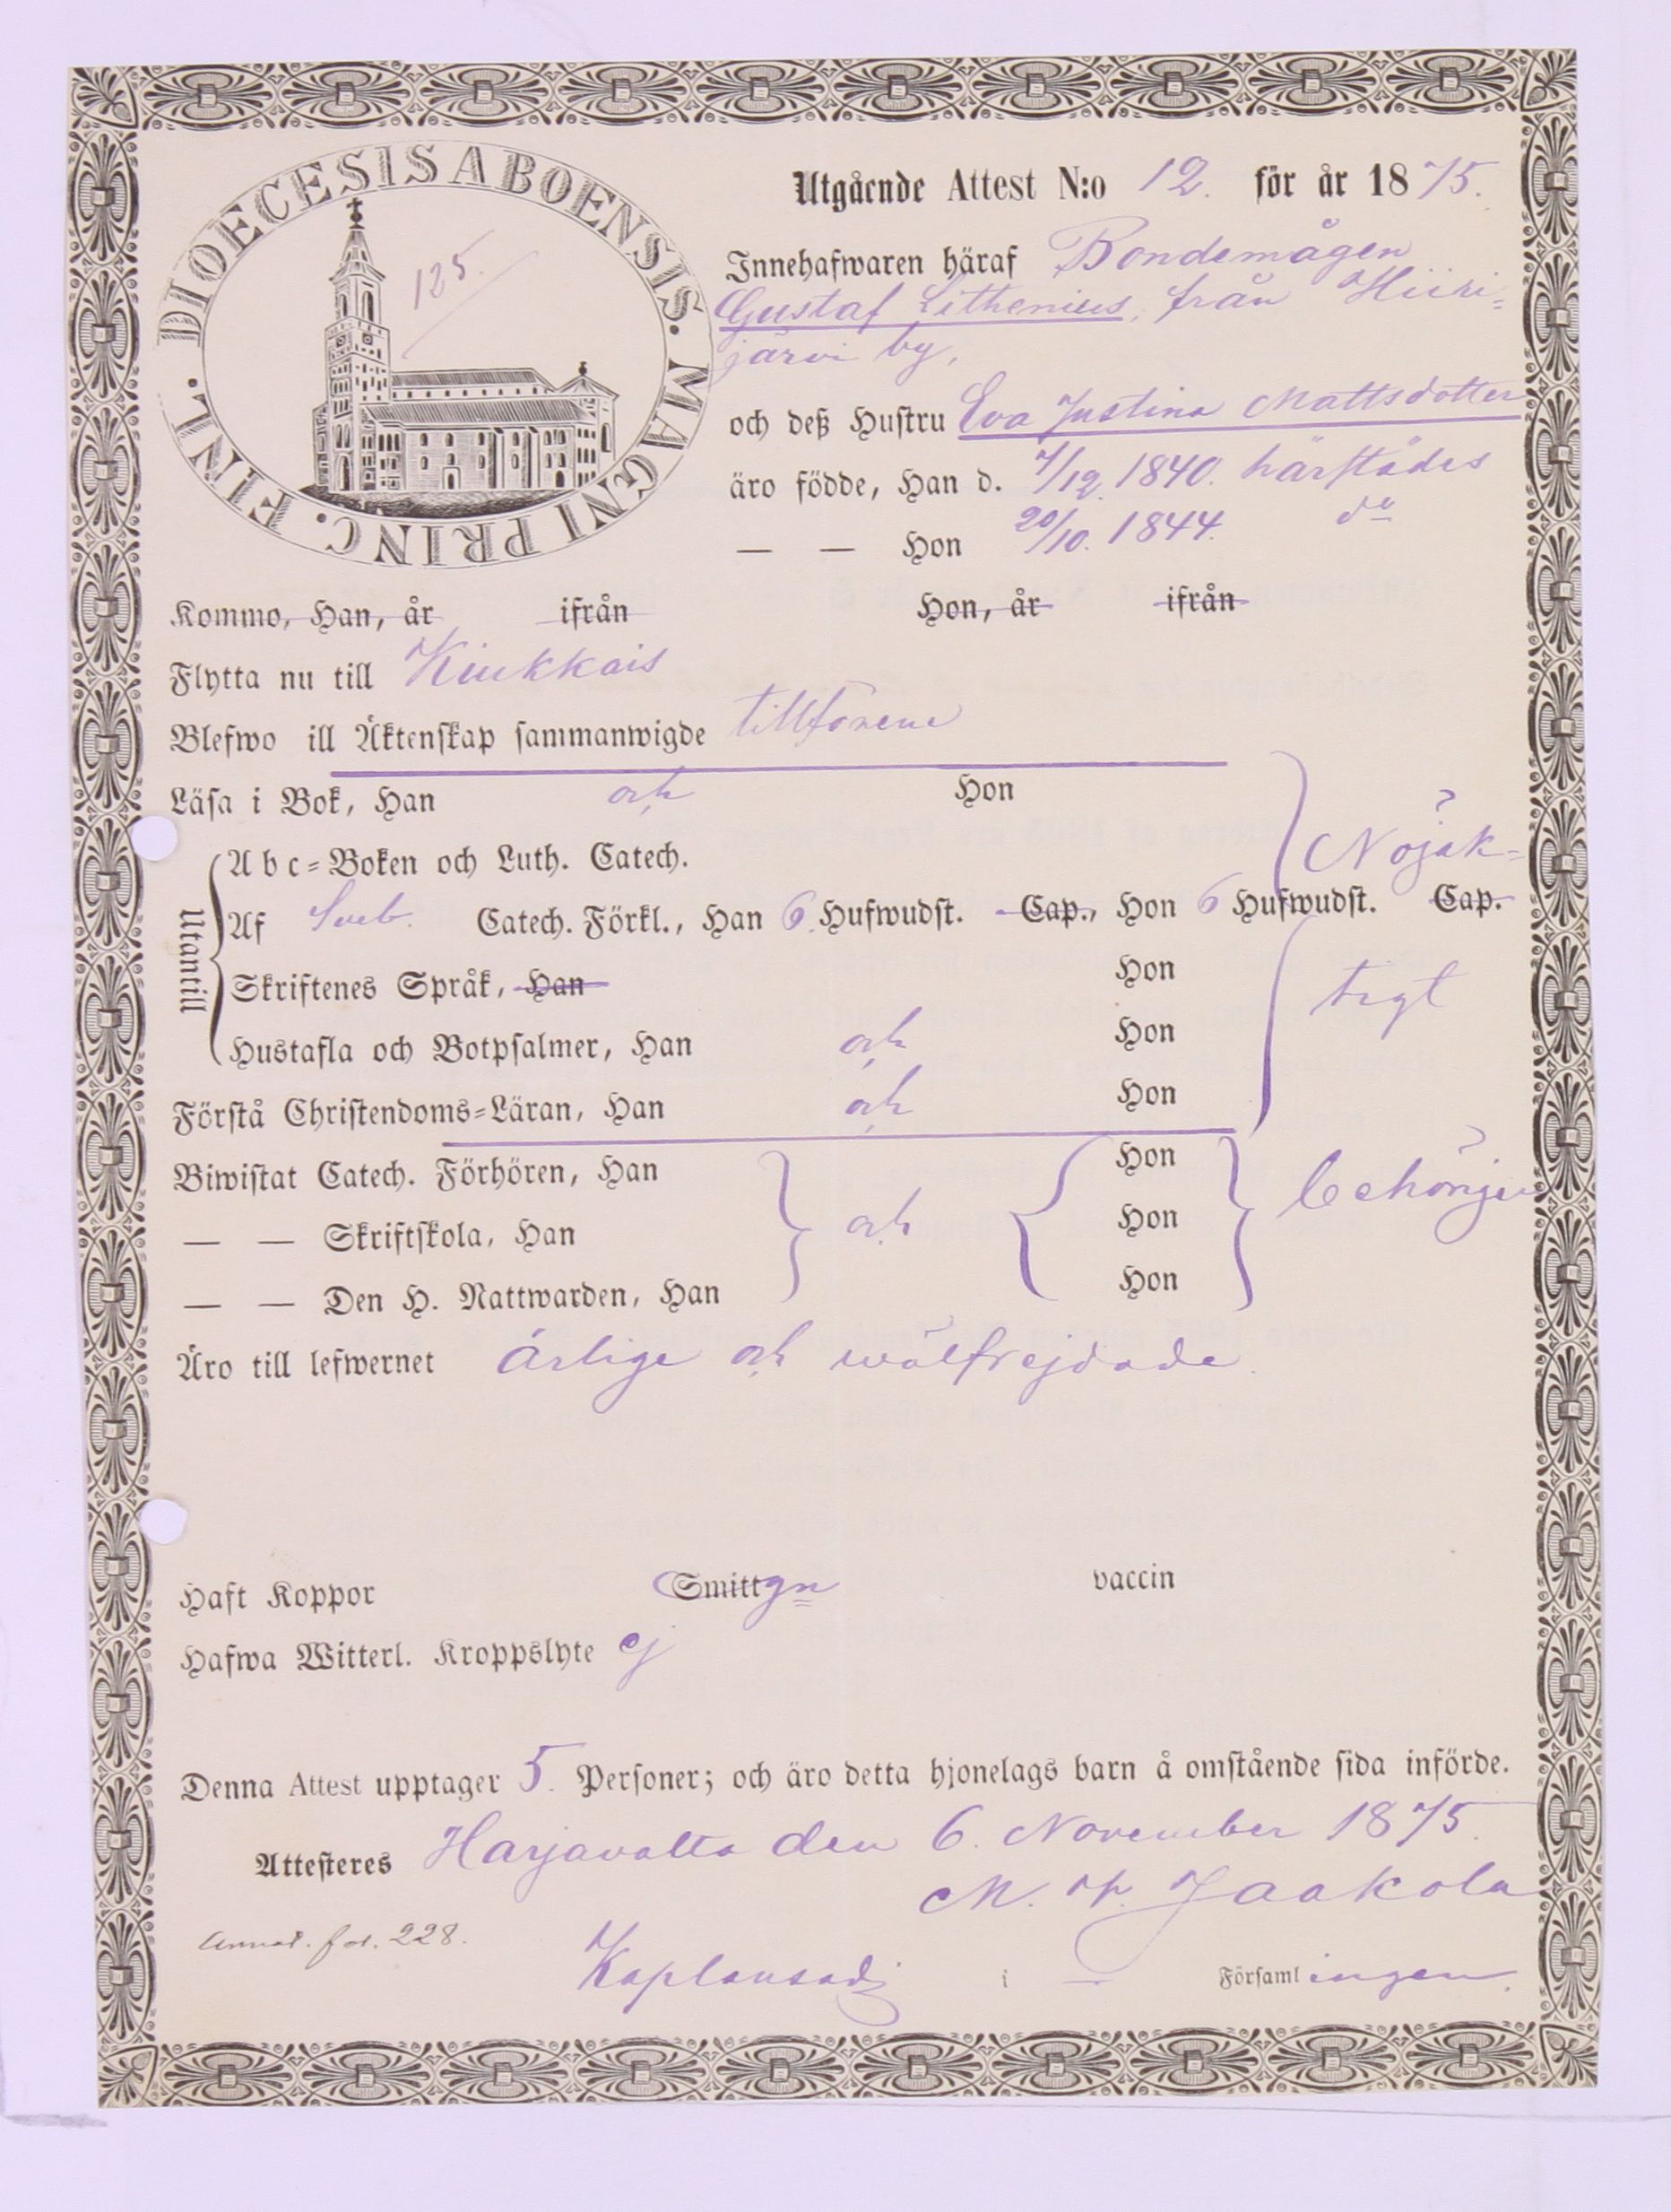 DIOECESIS ABOENSIS. MAGNI PRINC. FINL.
125.
Utgående Attest N:o 12. för år 1875.
Innehafwaren häraf Bondemågen
Gustaf Lithenius, från Hiiri-
järvi by,
och deß Hustru Eva Justina Mattsdotter
äro födde, Han d. 7/12. 1840. härstädes
— — Hon 20/10. 1844. do
Kommo, Han, år ifrån Hon, år ifrån
Flytta nu till Kiukkais
Blefwo ill Äktenskap sammanwigde tillförene
Läsa i Bok, Han och Hon
Abc-Boken och Luth. Catech. Nöjak-
Utantill
Af Sveb. Catech. Förkl., Han 6. Hufwudst. Cap., Hon 6 Hufwudst. Cap.
Skriftenes Språk, Han Hon tigt
Hustafla och Botpsalmer, Han och Hon
Förstå Christendoms-Läran, Han och Hon
Biwistat Catech. Förhören, Han Hon
— — Skriftskola, Han och Hon behörigen
— — Den H. Nattwarden, Han Hon
Äro till lefwernet ärlige och wälfrejdade.
Haft Koppor Smitt vaccin
Hafwa Witterl. Kroppslyte ej
Denna Attest upptager 5. Personer; och äro detta hjonelags barn å omstående sida införde.
Attesteres Harjavalta den 6. November 1875.
M. W. Jaakola
Annot. fol. 228.
Kaplansadj i — Församlingen.